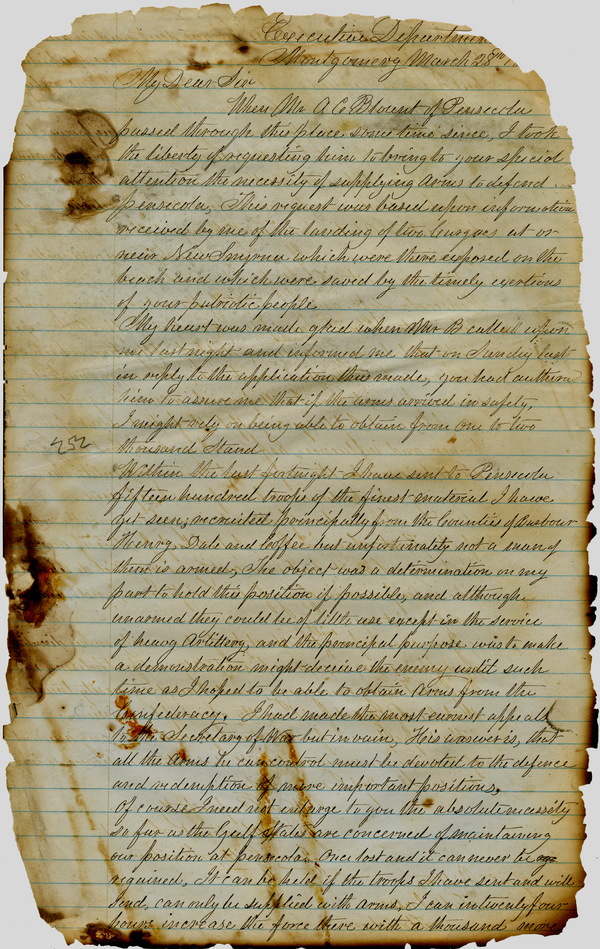 Executive Department
Montgomery March 28th
My Dear Sir
When Mr A C Blount of Pensecola
passed through this place some time since, I took
the liberty of requesting him to bring to your special
attention the necessity of supplying arms to defend
Pensecola, This request was based upon information
received by me of the landing of two Cargoes at or
near New Smyrna which were there exposed on the
beach and which were saved by the timely exertions
of your patriotic people
My heart was made glad when Mr B called upon
me last night and informed me that on Sunday last
in reply to the application thus made, you had authorized
him to assure me that if the arms arrived in safety,
I might rely on being able to obtain from one to two
thousand Stand
252
Within the last fortnight I have sent to Pensecola
fifteen hundred troops of the finest material I have
yet seen, recruited principally from the Counties of Barbour
Henry, Dale and Coffee but unfortunately not a man of
them is armed, The object was a determination on my
part to hold this position if possible, and although
unarmed they could be of little use except in the service
of heavy Artillery, and the principal purpose was to make
a demonstration might deceive the enemy until such
time as I hoped to be able to obtain Arms from the
Confederacy. I had made the most earnest appeals
to the Secretary of War but in vain, His answer is, that
all the Arms he can control must be devoted to the defence
and redemption of more important positions.
Of course I need not enlarge to you the absolute necessity
so far as the Gulf States are concerned of maintaining
our position at pensecola. Once lost and it can never be
regained, It can be held if the troops I have sent and will
send, can only be supplied with arms, I can in twenty four
hours increase the force there with a thousand more